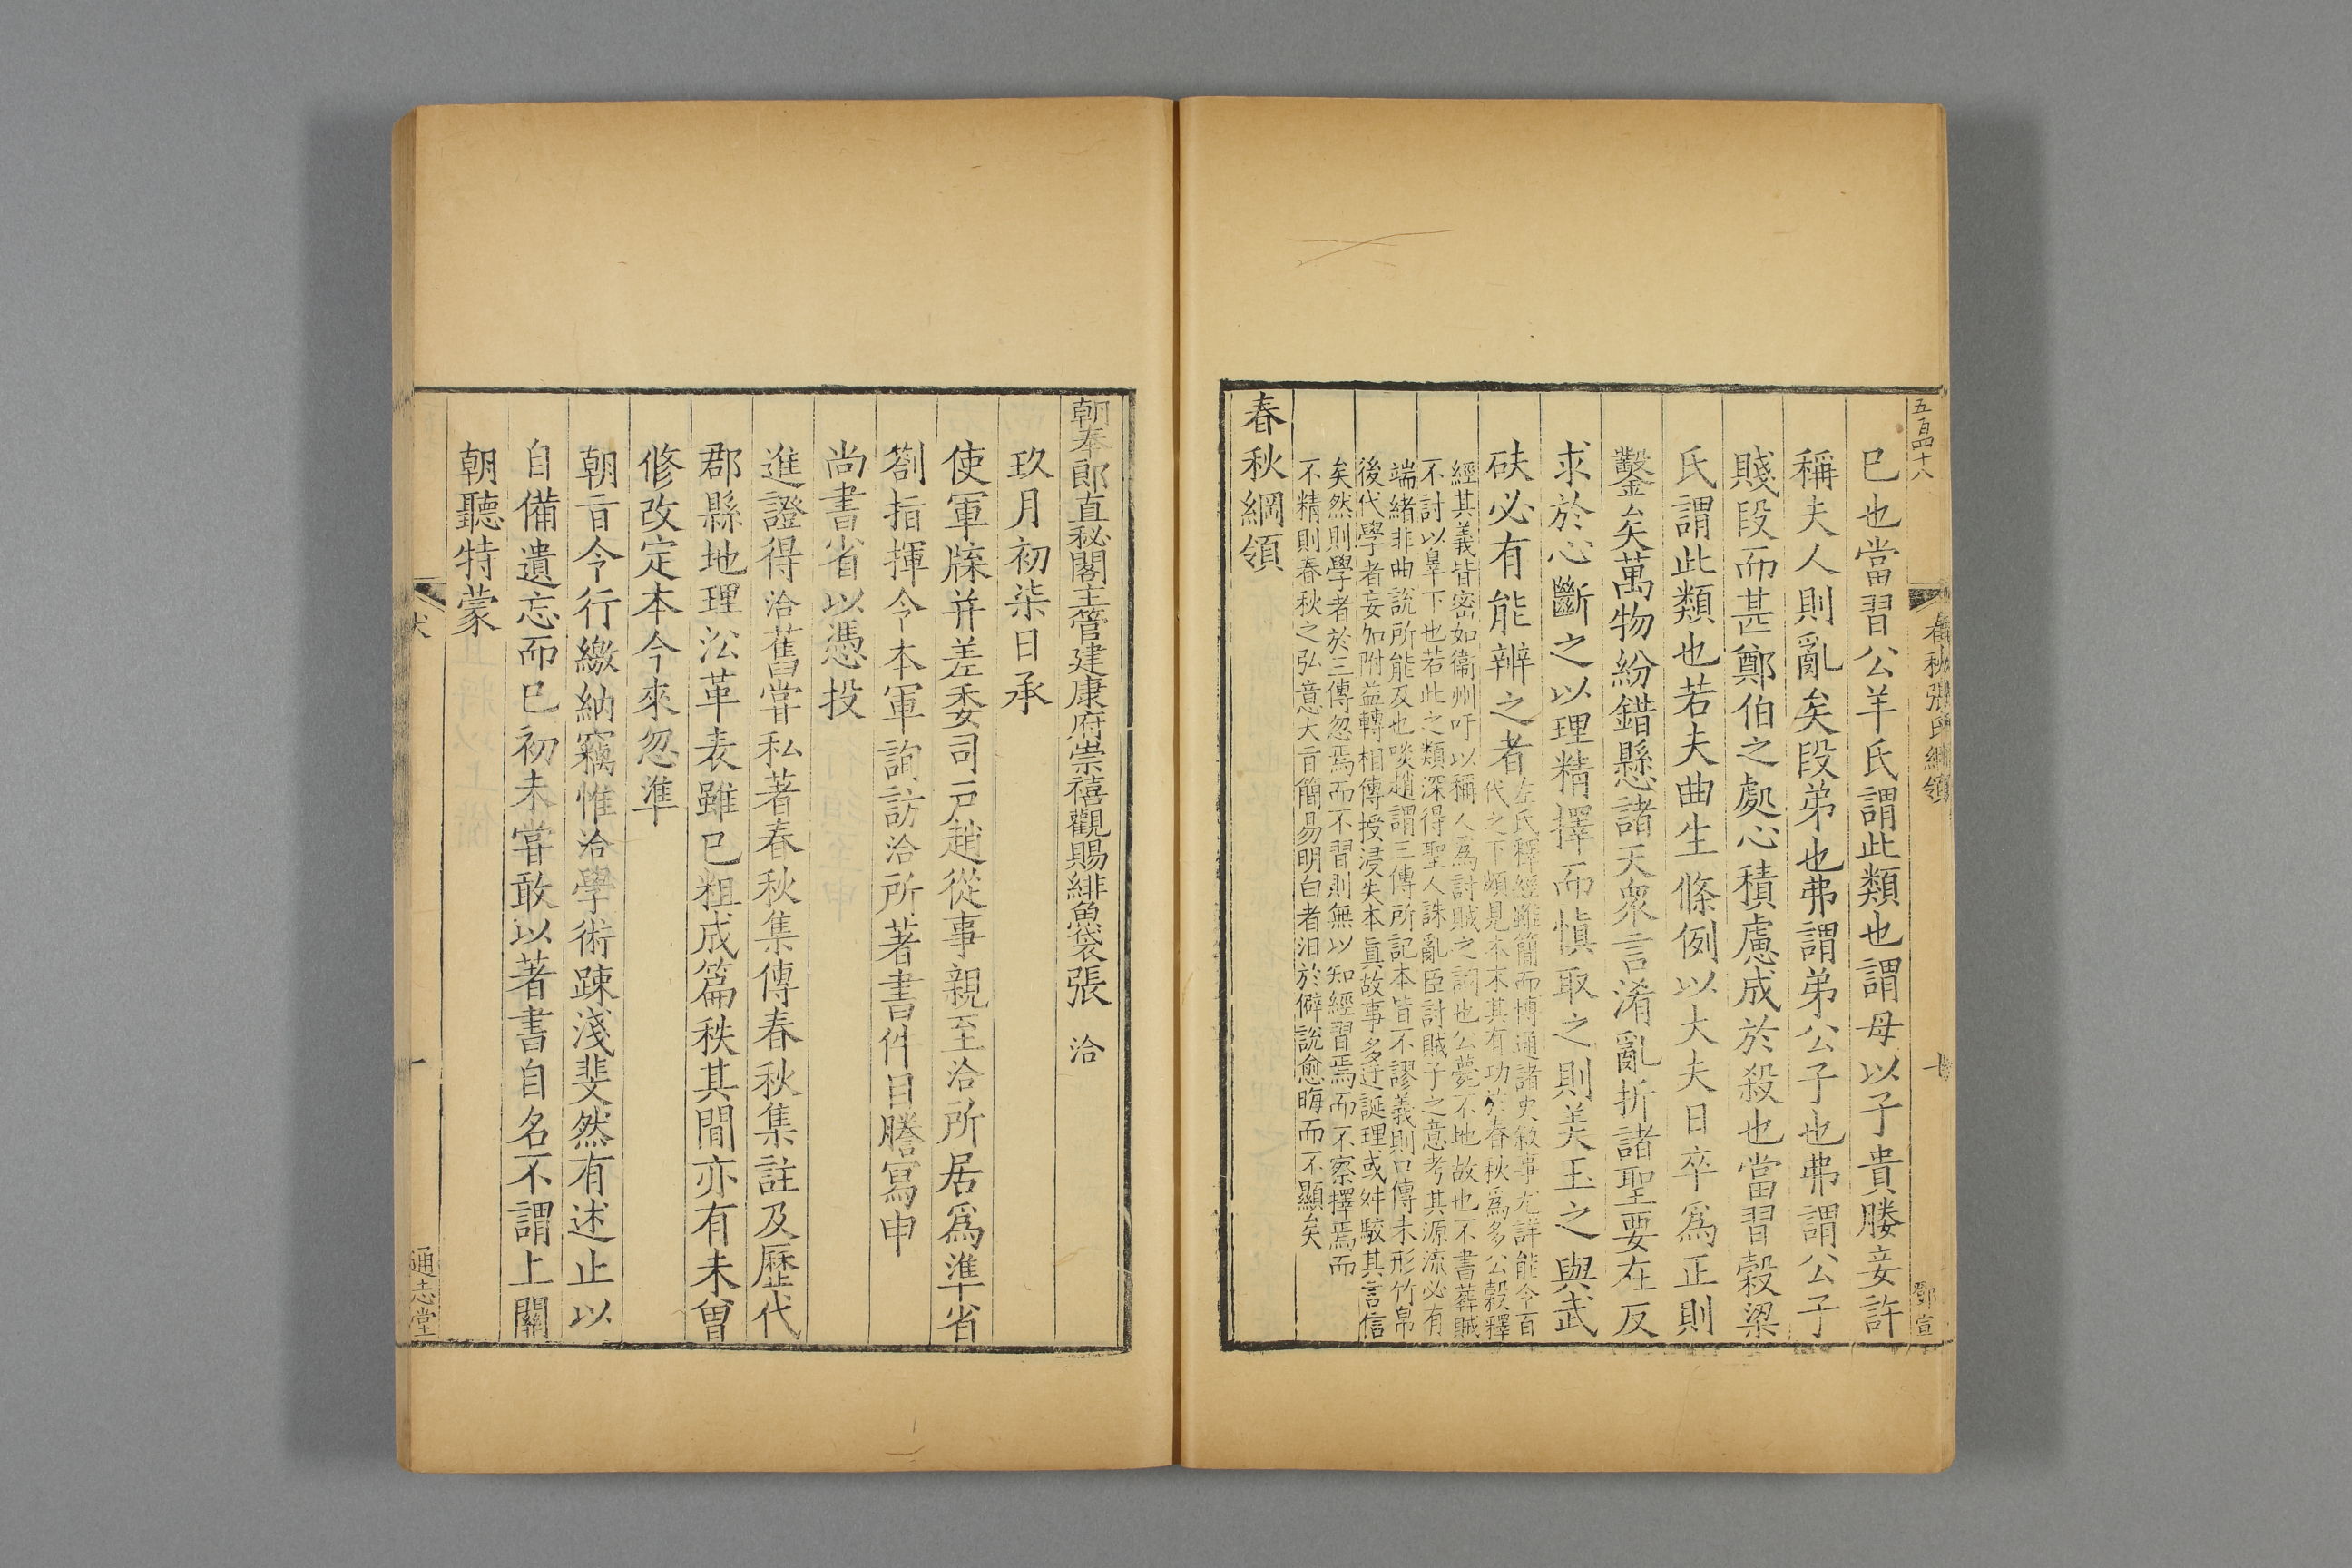 五百四十八
春秋張氏綱領
七
鄧宣
巳也當習公羊氏謂此類也謂母以子貴媵妾許
稱夫人則亂矣段弟也弗謂弟公子也弗謂公子
賤段而甚鄭伯之處心積慮成於殺也當習穀梁
氏謂此類也若夫曲生條例以大夫日卒爲正則
鑿矣萬物紛錯懸諸天衆言淆亂折諸聖要在反
求於心斷之以理精擇而慎取之則美玉之與武
砆必有能辨之者
左氏釋經雖簡而博通諸史敘事尤詳能令百
代之下頗見本末其有功於春秋爲多公穀釋
經其義皆密如衞州吁以稱人爲討賊之詞也公薨不地故也不書葬賊
不討以辠下也若此之類深得聖人誅亂臣討賊子之意考其源流必有
端緒非曲說所能及也啖趙謂三傳所記本皆不謬義則口傳未形竹帛
後代學者妄加附益轉相傳授浸失本眞故事多迂誕理或舛駁其言信
矣然則學者於三傳忽焉而不習則無以知經習焉而不察擇焉而
不精則春秋之弘意大旨簡易明白者汨於僻說愈晦而不顯矣
春秋綱領
朝奉郎直秘閣主管建康府崇禧觀賜緋魚袋張 洽
玖月初柒日承
使軍牒并差委司戶趙從事親至洽所居爲準省
劄指揮令本軍詢訪洽所著書件目謄寫申
尚書省以憑投
進證得洽舊嘗私著春秋集傳春秋集註及歷代
郡縣地理沿革表雖已粗成篇秩其間亦有未曾
修改定本今來忽準
朝旨令行繳納竊惟洽學術踈淺斐然有述止以
自備遺忘而已初未嘗敢以著書自名不謂上關
朝聽特蒙
一
通志堂